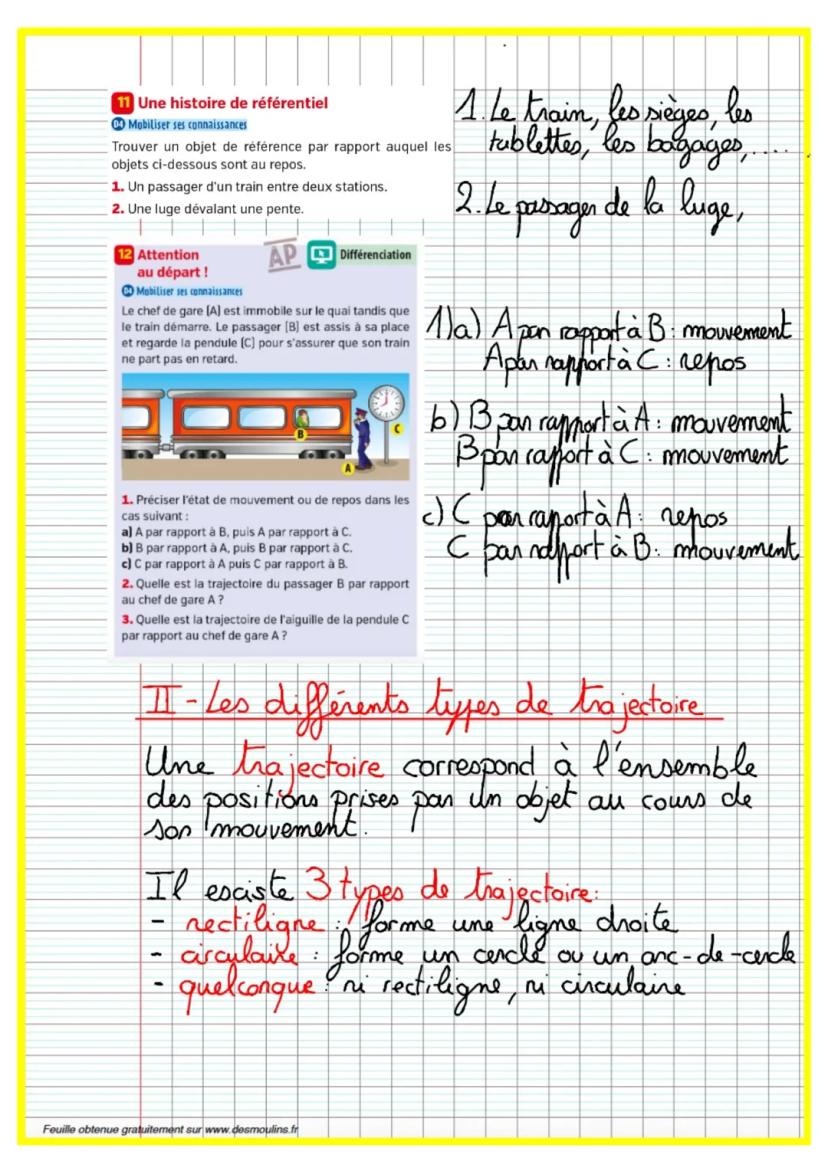 11 Une histoire de référentiel
D4 Mobiliser ses connaissances
Trouver un objet de référence par rapport auquel les
objets ci-dessous sont au repos.
1. Un passager d'un train entre deux stations.
2. Une luge dévalant une pente.
1. Le train, les sièges, les
tablettes, les bagages, ....
2. Le passager de la luge,
12 Attention
au départ !
AP
Différenciation
D4 Mobiliser ses connaissances
Le chef de gare (A) est immobile sur le quai tandis que
le train démarre. Le passager (B) est assis à sa place
et regarde la pendule (C) pour s'assurer que son train
ne part pas en retard.
B
C
A
1. Préciser l'état de mouvement ou de repos dans les
cas suivant :
a) A par rapport à B, puis A par rapport à C.
b) B par rapport à A, puis B par rapport à C.
c) C par rapport à A puis C par rapport à B.
2. Quelle est la trajectoire du passager B par rapport
au chef de gare A ?
3. Quelle est la trajectoire de l'aiguille de la pendule C
par rapport au chef de gare A ?
1)a) A par rapport à B : mouvement
A par rapport à C : repos
b) B par rapport à A : mouvement
B par rapport à C : mouvement
c) C par rapport à A : repos
C par rapport à B : mouvement
II - Les différents types de trajectoire
Une trajectoire correspond à l'ensemble
des positions prises par un objet au cours de
son mouvement.
Il existe 3 types de trajectoire :
- rectiligne : forme une ligne droite
- circulaire : forme un cercle ou un arc-de-cercle
- quelconque : ni rectiligne, ni circulaire
Feuille obtenue gratuitement sur www.desmoulins.fr